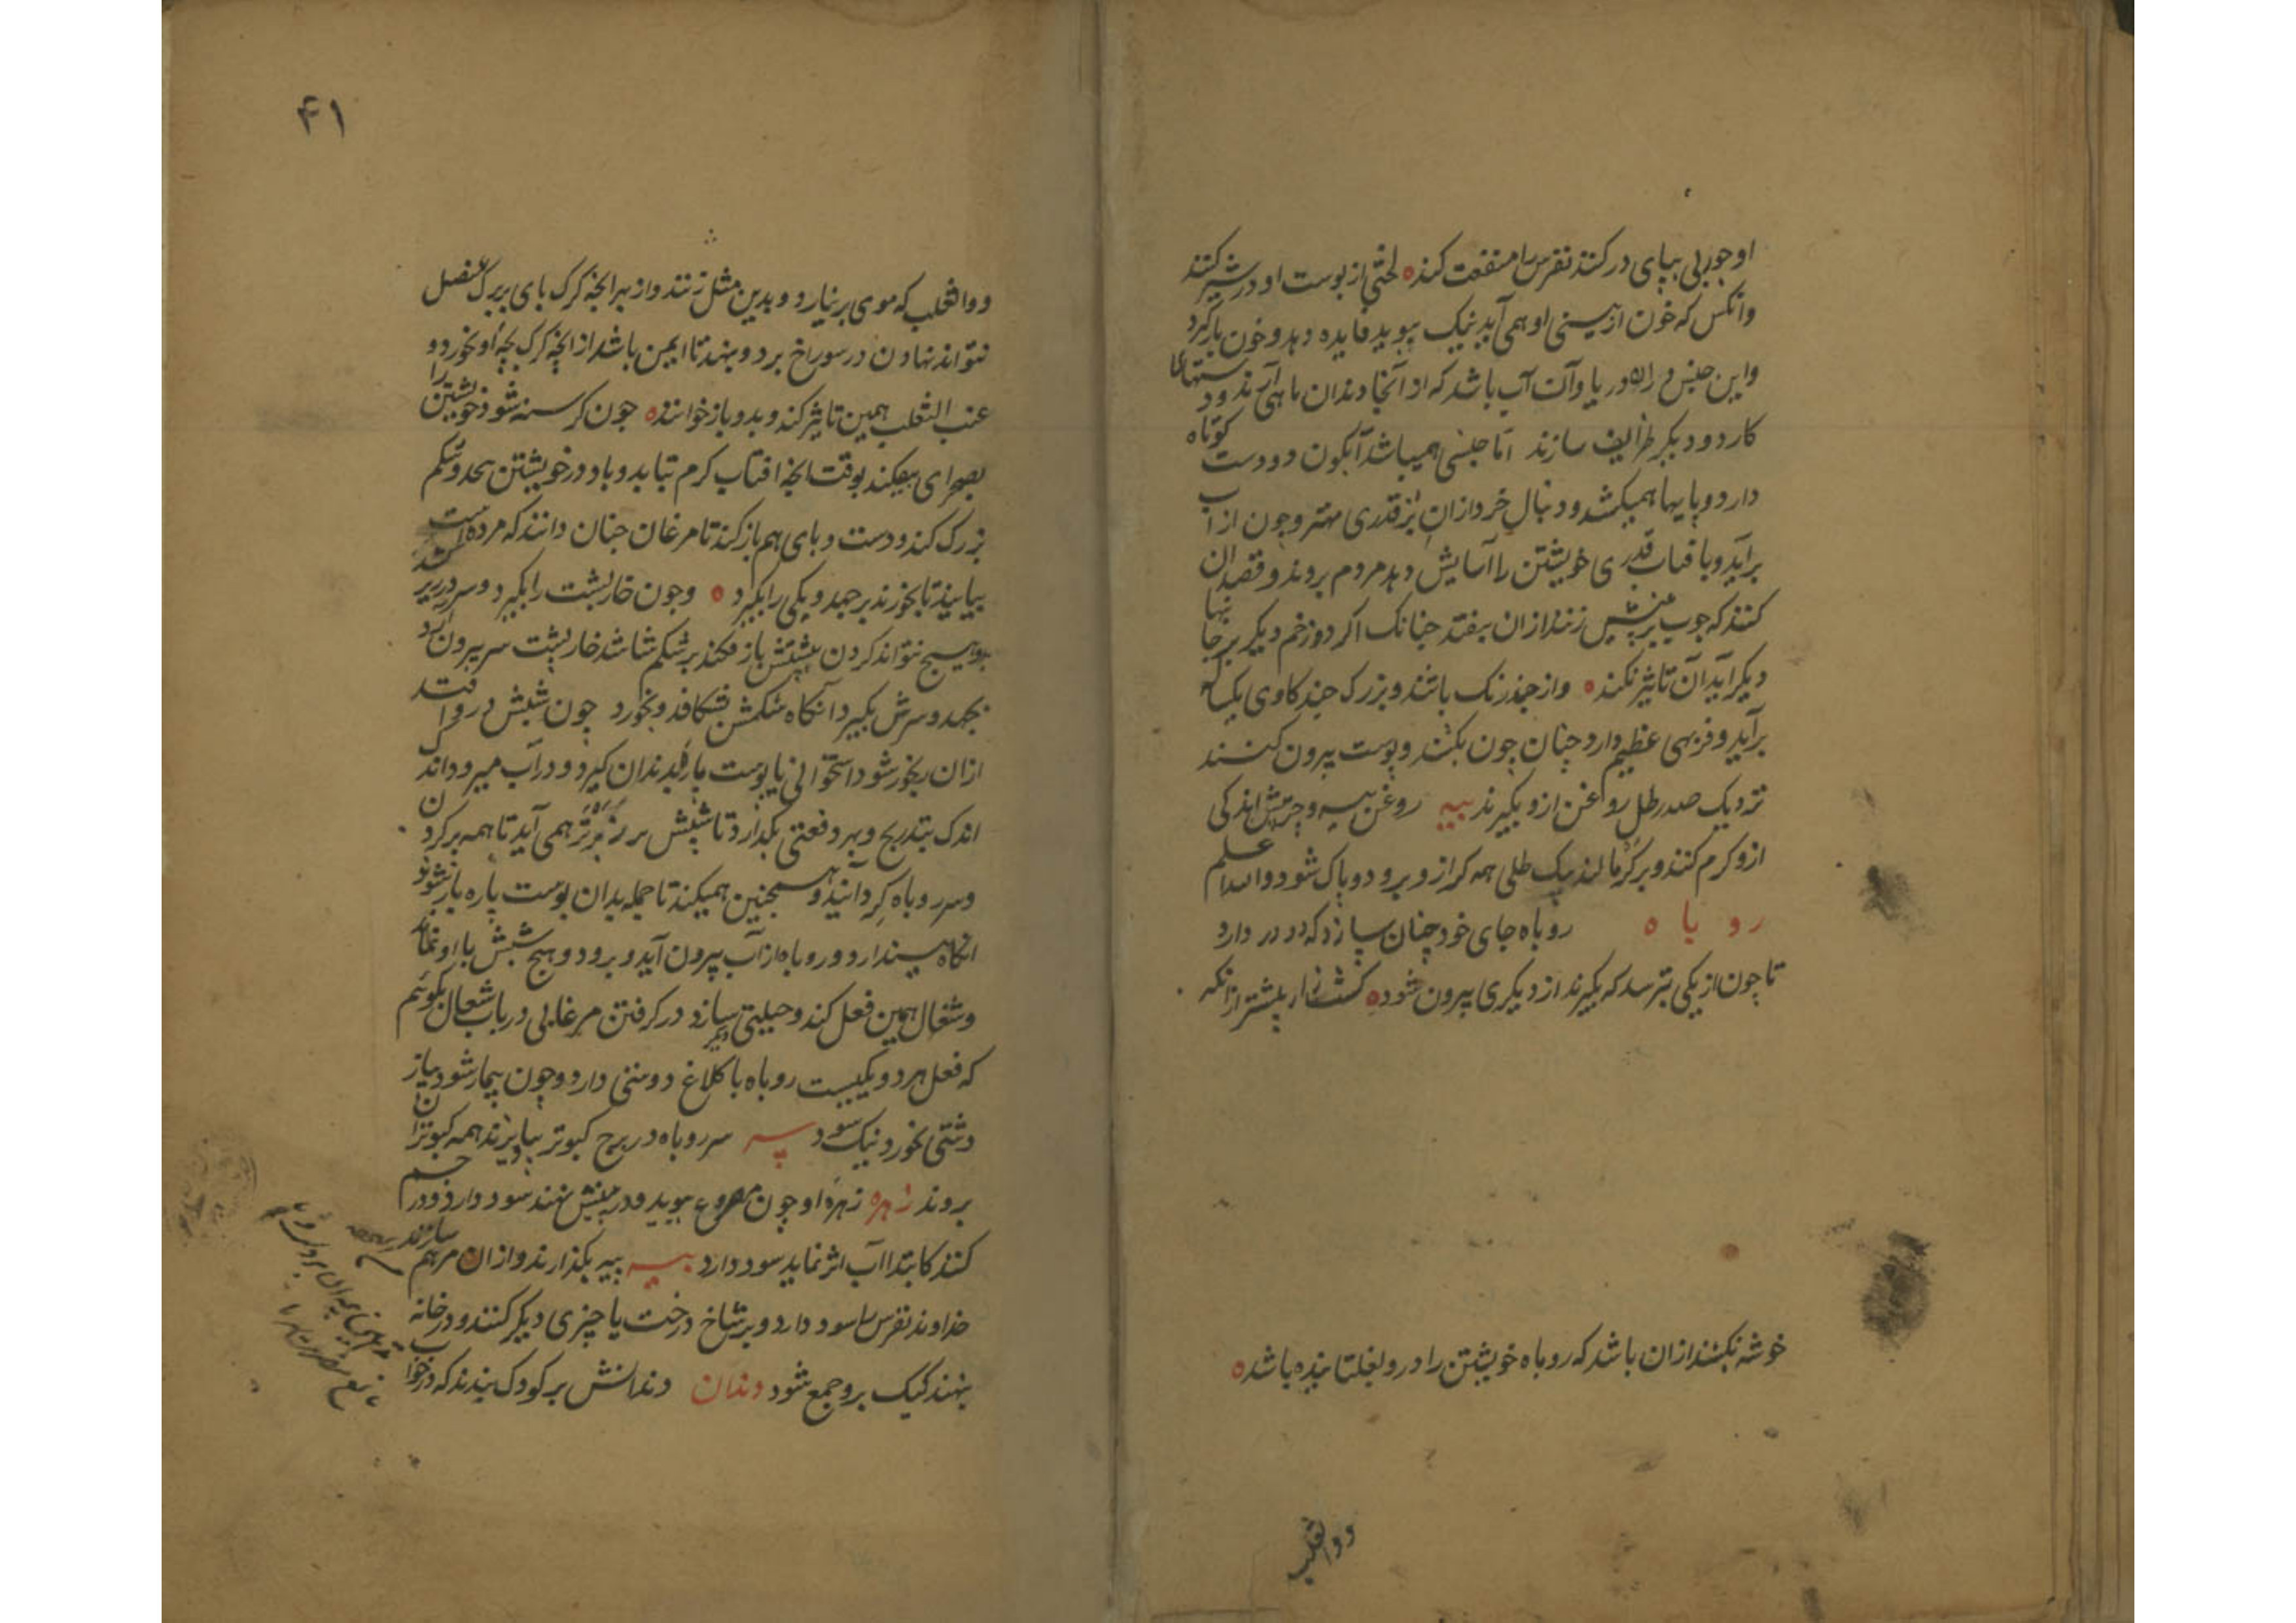 او چربی بپای در کنند نقرس را منفعت کند ه لختی از پوست او در شیر کنند
وانکس که خون از بینی او همی آید نیک ببوید فایده دهد و خون بازگیرد
واین جنس در دریا وآن آب باشد که از آنجا دندان ماهی آرند و دستهای
کارد و دیگر طرایف سازند اما جنسی همیباشد آبگون دو دست کوتاه
دارد و پایها همیکشد و دنبال خرد ازان بز قدری مهتر وچون از آب
برآید و بافتاب قدری خویشتن را آسایش دهد مردم بروند و قصد ان
کنند که چوب بر زنند ازان بیفتد چنانک اگر دو زخم دیگر بر جا
دیگر آید آن تاثیر نکند ه واز چند رنگ باشند و بزرگ چند کاوی
برآید و فربهی عظیم دارد چنان چون بکشند و پوست بیرون کنند
نزدیک صد رطل روغن ازو بگیرند پیه روغن پیه اندکی
ازو کرم کنند و بر کر مالند بیک طلی همه کر ازو برود و پاک شود والله اعلم
روباه روباه جای خود چنان سازد که دو در دارد
تا چون از یکی بترسد که بگیرند از دیگری بیرون شود ه کشت زار بیشتر ازانکه
خوشه نکشند ازان باشد که روباه خویشتن را درو بغلتانیده باشد ه
دوا ثعلب
۴۱
دوا ثعلب که موی برنیارد و بدین مثل زنند واز بهر انچه کرک پای بر برک عنصل
نتواند نهادن در سوراخ برد و بنهد تا ایمن باشد از انچه کرک بچه او نخورد و
عنب الثعلب همین تاثیر کند و بدو باز خوانند ه چون کرسنه شود خویشتن را
بصحرای بیفکند بوقت انچه افتاب کرم بتابد و باد در خویشتن و شکم
بزرک کند و دست و پای هم باز کند تا مرغان چنان دانند که مرده است
بیایند تا بخورند برجهد و یکی را بگیرد ه وچون خارپشت را بگیرد و سر در زیر
برد هیچ نتواند کردن بپشتش باز فکند بر شکم شاشد خارپشت سر بیرون آرد
بجهد و سرش بگیرد آنکاه شکمش بشکافد و بخورد چون شپش در افتد
ازان رنجور شود استخوانی یا پوست پاره بدندان گیرد و در آب میرود اندک
اندک بتدریج و بهر دفعتی بگذارد تا شپش برتر همی آید تا همه بر کردن
وسر روباه کرد آیند و همچنین همیکند تا جمله بدان پوست پاره باز شوند
انگاه بیندازد و روباه از آب بیرون آید و برود و هیچ شپش با او نماند
وشغال همین فعل کند و حیلتی دیگر سازد در کرفتن مرغابی در باب شغال بگوئیم
که فعل هر دو یکیست روباه با کلاغ دوستی دارد وچون بیمار شود پیاز
دشتی بخورد نیک شود سر سر روباه در برج کبوتر بیاویزند همه کبوتران
بروند زهره زهره او چون مصروع ببوید و در بینیش نهند سود دارد و در چشم
کنند کابتدا آب اثر نماید سود دارد پیه پیه بگذارند وازان مرهم سازند
خداوند نقرس را سود دارد و بر شاخ درخت یا چیزی دیگر کنند و در خانه
بنهند کیک برو جمع شود دندان دندانش بر کودک بندند که در خواب